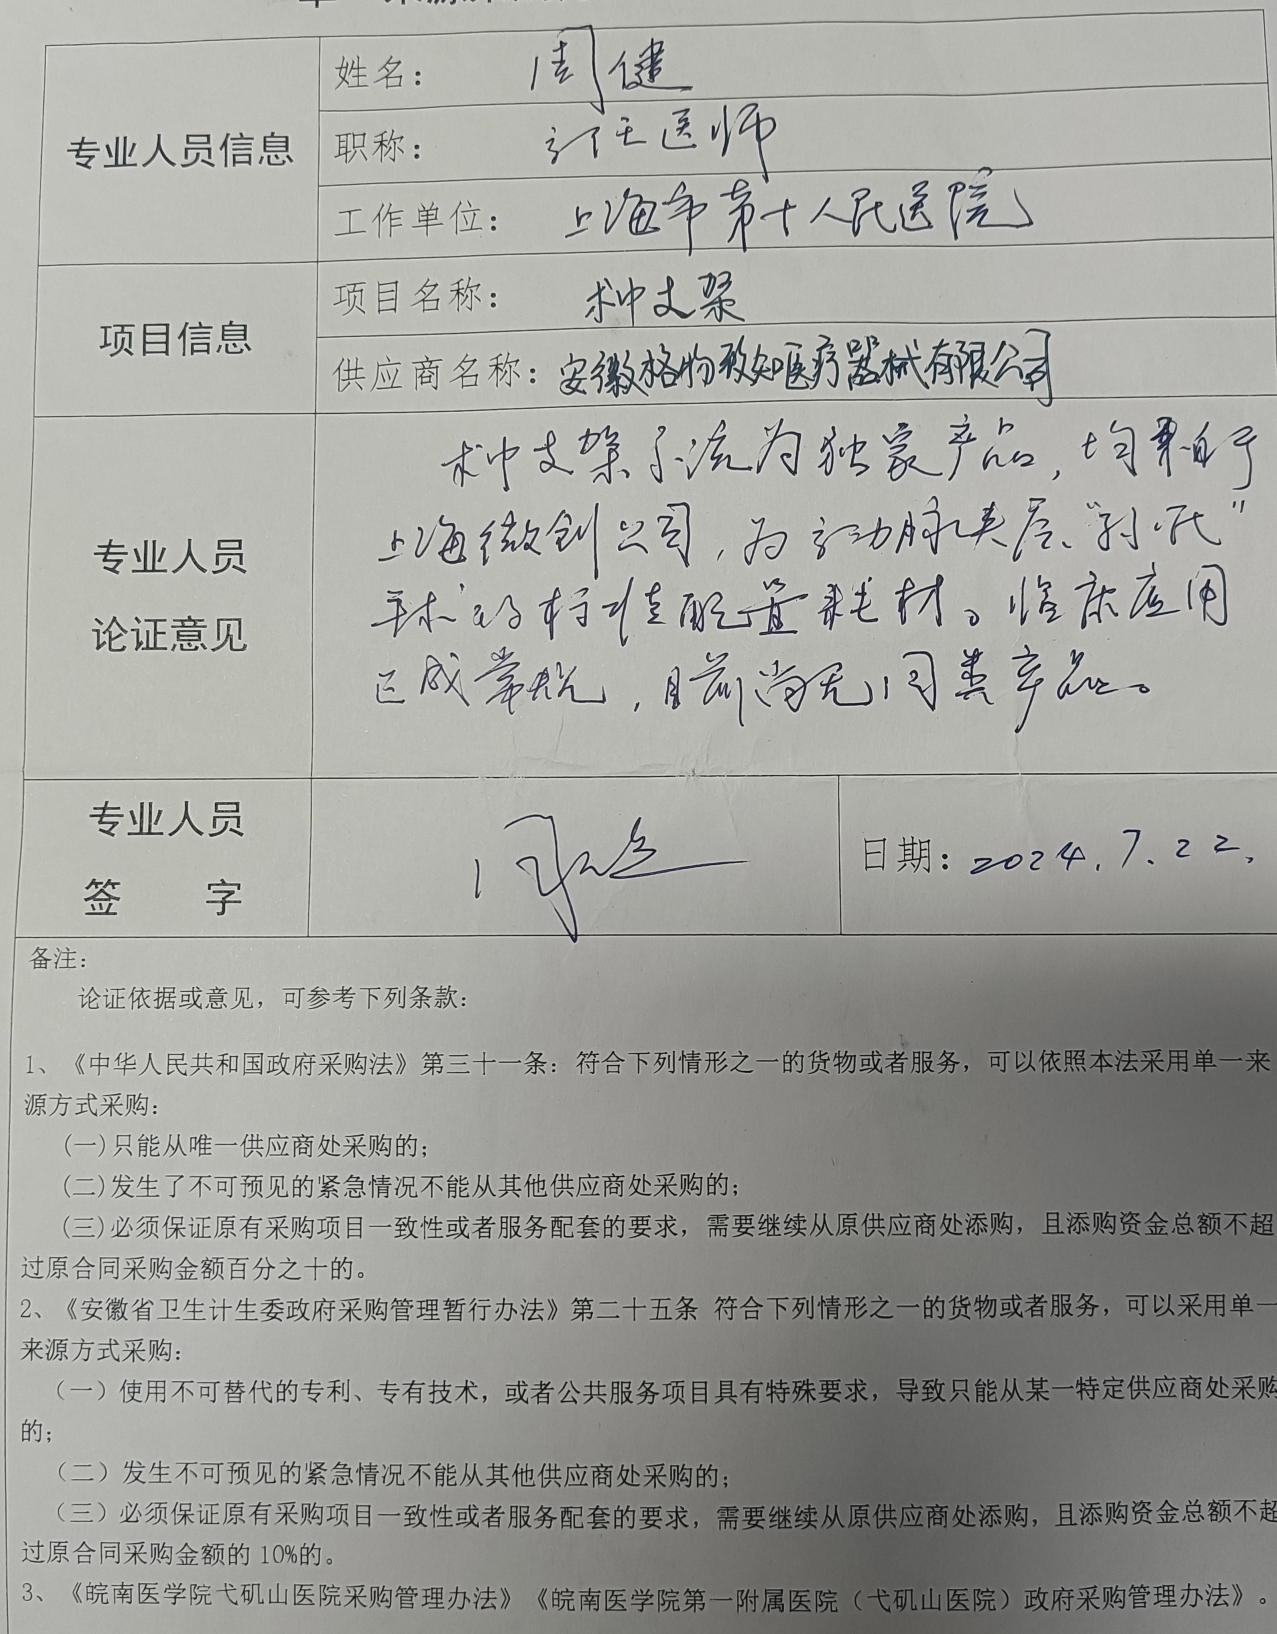 专业人员信息
姓名： 周健
职称： 主任医师
工作单位： 上海市第十人民医院
项目信息
项目名称： 术中支架
供应商名称：安徽格物致知医疗器械有限公司
专业人员
论证意见
术中支架系统为独家产品，均来自于
上海微创公司，为主动脉夹层、“孙氏”
手术的标准配置耗材。临床应用
已成常规，目前尚无同类产品。
专业人员
签 字
周健
日期：2024.7.22.
备注：
论证依据或意见，可参考下列条款：
1、《中华人民共和国政府采购法》第三十一条：符合下列情形之一的货物或者服务，可以依照本法采用单一来
源方式采购：
(一)只能从唯一供应商处采购的；
(二)发生了不可预见的紧急情况不能从其他供应商处采购的；
(三)必须保证原有采购项目一致性或者服务配套的要求，需要继续从原供应商处添购，且添购资金总额不超
过原合同采购金额百分之十的。
2、《安徽省卫生计生委政府采购管理暂行办法》第二十五条 符合下列情形之一的货物或者服务，可以采用单一
来源方式采购：
（一）使用不可替代的专利、专有技术，或者公共服务项目具有特殊要求，导致只能从某一特定供应商处采购
的；
（二）发生不可预见的紧急情况不能从其他供应商处采购的；
（三）必须保证原有采购项目一致性或者服务配套的要求，需要继续从原供应商处添购，且添购资金总额不超
过原合同采购金额的 10%的。
3、《皖南医学院弋矶山医院采购管理办法》《皖南医学院第一附属医院（弋矶山医院）政府采购管理办法》。